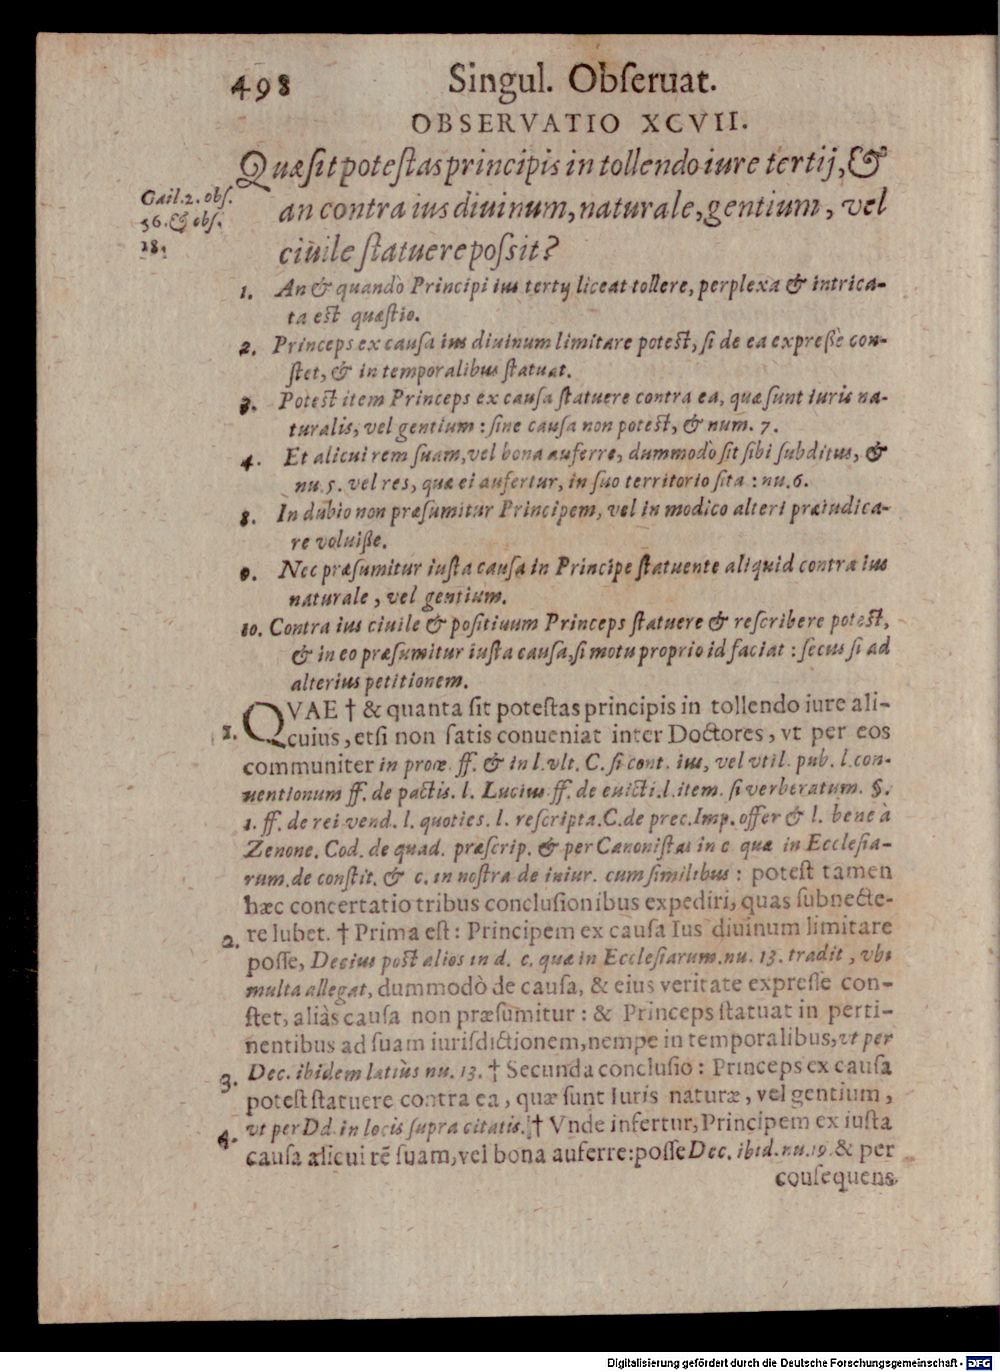 498 Singul. Obſeruat.
OBSERVATIO XCVII.
Quæ ſit poteſtas principis in tollendo iure tertij, &
Gail. 2. obſ.
56. & obſ.
18.
an contra ius diuinum, naturale, gentium, vel
ciuile ſtatuere poſsit?
1. An & quandò Principi ius tertij liceat tollere, perplexa & intrica-
ta est quæſtio.
2. Princeps ex cauſa ius diuinum limitare potest, ſi de ea expreſsè con-
ſtet, & in temporalibus ſtatuat.
3. Potest item Princeps ex cauſa ſtatuere contra ea, quæ ſunt iuris na-
turalis, vel gentium: ſine cauſa non potest, & num. 7.
4. Et alicui rem ſuam, vel bona auferre, dummodò ſit ſibi ſubditus, &
nu. 5. vel res, quæ ei aufertur, in ſuo territorio ſita: nu. 6.
8. In dubio non præſumitur Principem, vel in modico alteri præiudica-
re voluiße.
9. Nec præſumitur iuſta cauſa in Principe ſtatuente aliquid contra ius
naturale, vel gentium.
10. Contra ius ciuile & poſitiuum Princeps ſtatuere & reſcribere potest,
& in eo præſumitur iuſta cauſa, ſi motu proprio id faciat: ſecus ſi ad
alterius petitionem.
1. QVAE † & quanta ſit poteſtas principis in tollendo iure ali-
cuius, etſi non ſatis conueniat inter Doctores, vt per eos
communiter in proœ. ff. & in l. vlt. C. ſi cont. ius, vel vtil. pub. l. con-
uentionum ff. de pactis. l. Lucius ff. de euicti. l. item. ſi verberatum. §.
1. ff. de rei vend. l. quoties. l. reſcripta. C. de prec. Imp. offer & l. bene à
Zenone. Cod. de quad. præſcrip. & per Canoniſtas in c quæ in Eccleſia-
rum. de conſtit. & c. in noſtra de iniur. cum ſimilibus: poteſt tamen
hæc concertatio tribus concluſionibus expediri, quas ſubnecte-
2. re lubet. † Prima eſt: Principem ex cauſa Ius diuinum limitare
poſſe, Decius post alios in d. c. quæ in Eccleſiarum. nu. 13. tradit, vbi
multa allegat, dummodò de cauſa, & eius veritate expreſſe con-
ſtet, aliàs cauſa non præſumitur: & Princeps ſtatuat in perti-
nentibus ad ſuam iuriſdictionem, nempe in temporalibus, vt per
3. Dec. ibidem latiùs nu. 13. † Secunda concluſio: Princeps ex cauſa
poteſt ſtatuere contra ea, quæ ſunt Iuris naturæ, vel gentium,
4. vt per Dd. in locis ſupra citatis. † Vnde infertur, Principem ex iuſta
cauſa alicui rẽ ſuam, vel bona auferre: poſſe Dec. ibid. nu. 19. & per
conſequens
Digitalisierung gefördert durch die Deutsche Forschungsgemeinschaft - DFG